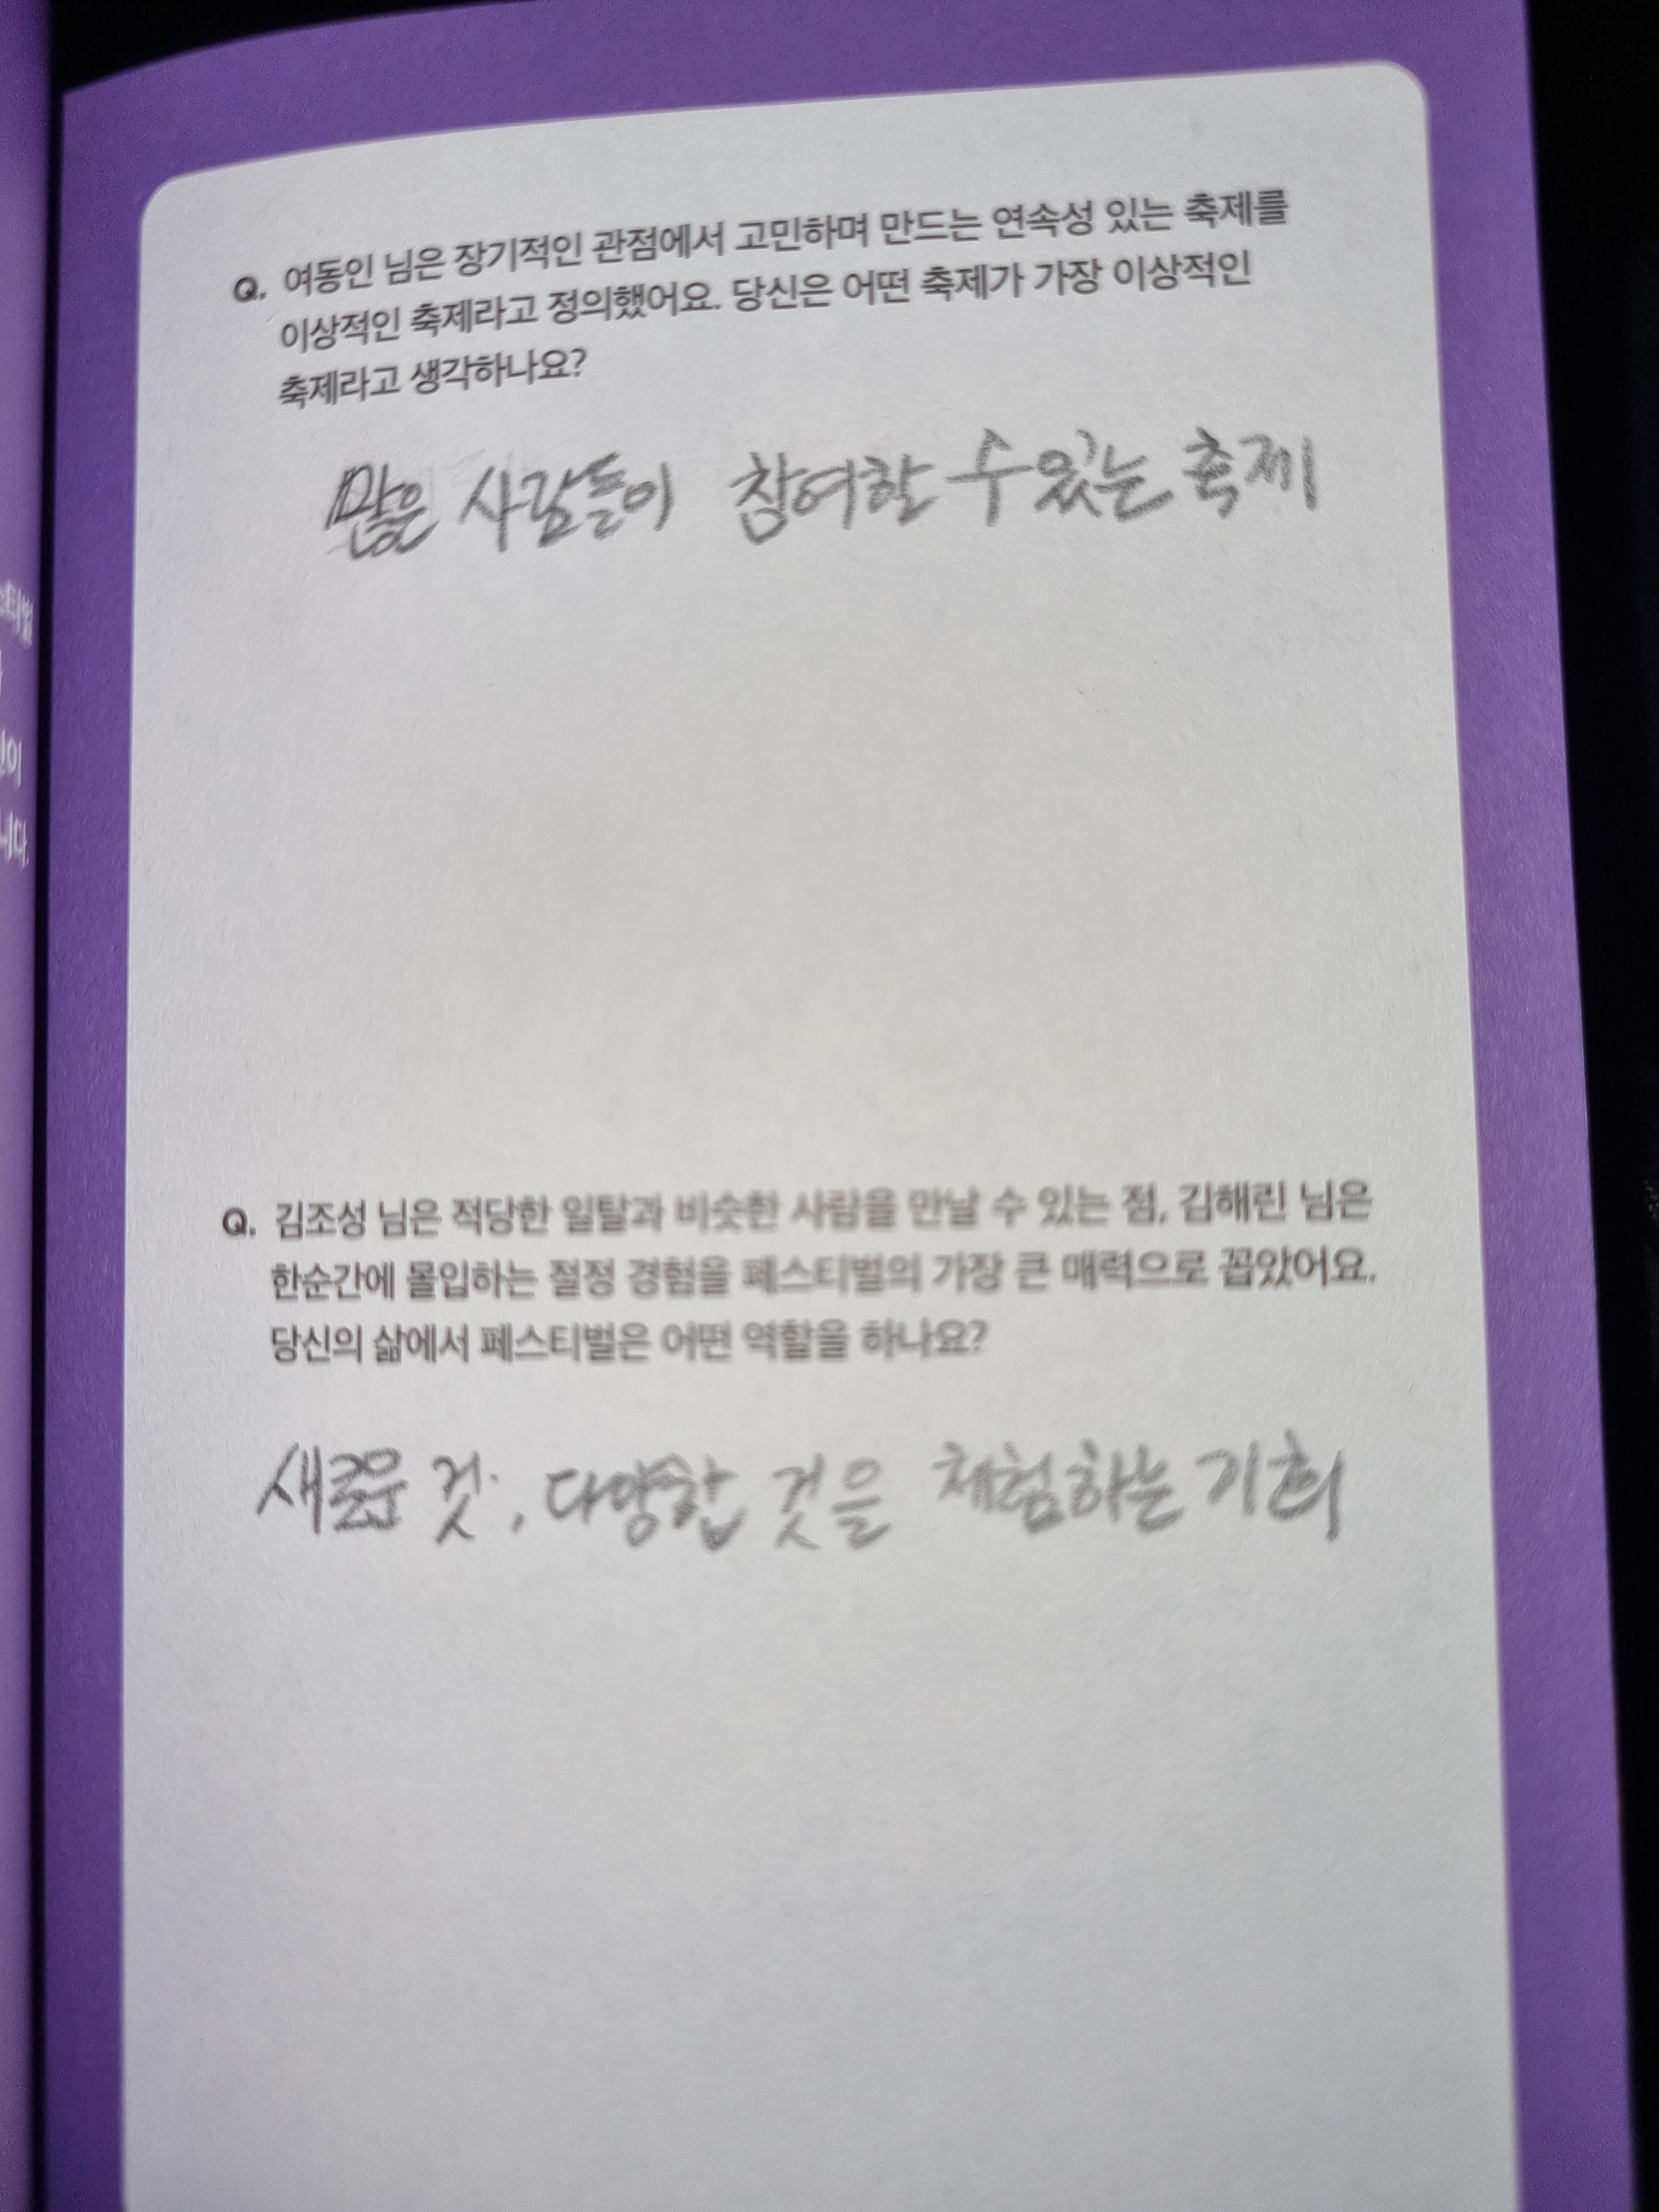 Q. 여동인 님은 장기적인 관점에서 고민하며 만드는 연속성 있는 축제를
이상적인 축제라고 정의했어요. 당신은 어떤 축제가 가장 이상적인
축제라고 생각하나요?
많은 사람들이 참여할 수 있는 축제
Q. 김조성 님은 적당한 일탈과 비슷한 사람을 만날 수 있는 점, 김해린 님은
한순간에 몰입하는 절정 경험을 페스티벌의 가장 큰 매력으로 꼽았어요.
당신의 삶에서 페스티벌은 어떤 역할을 하나요?
새로운 것, 다양한 것을 체험하는 기회